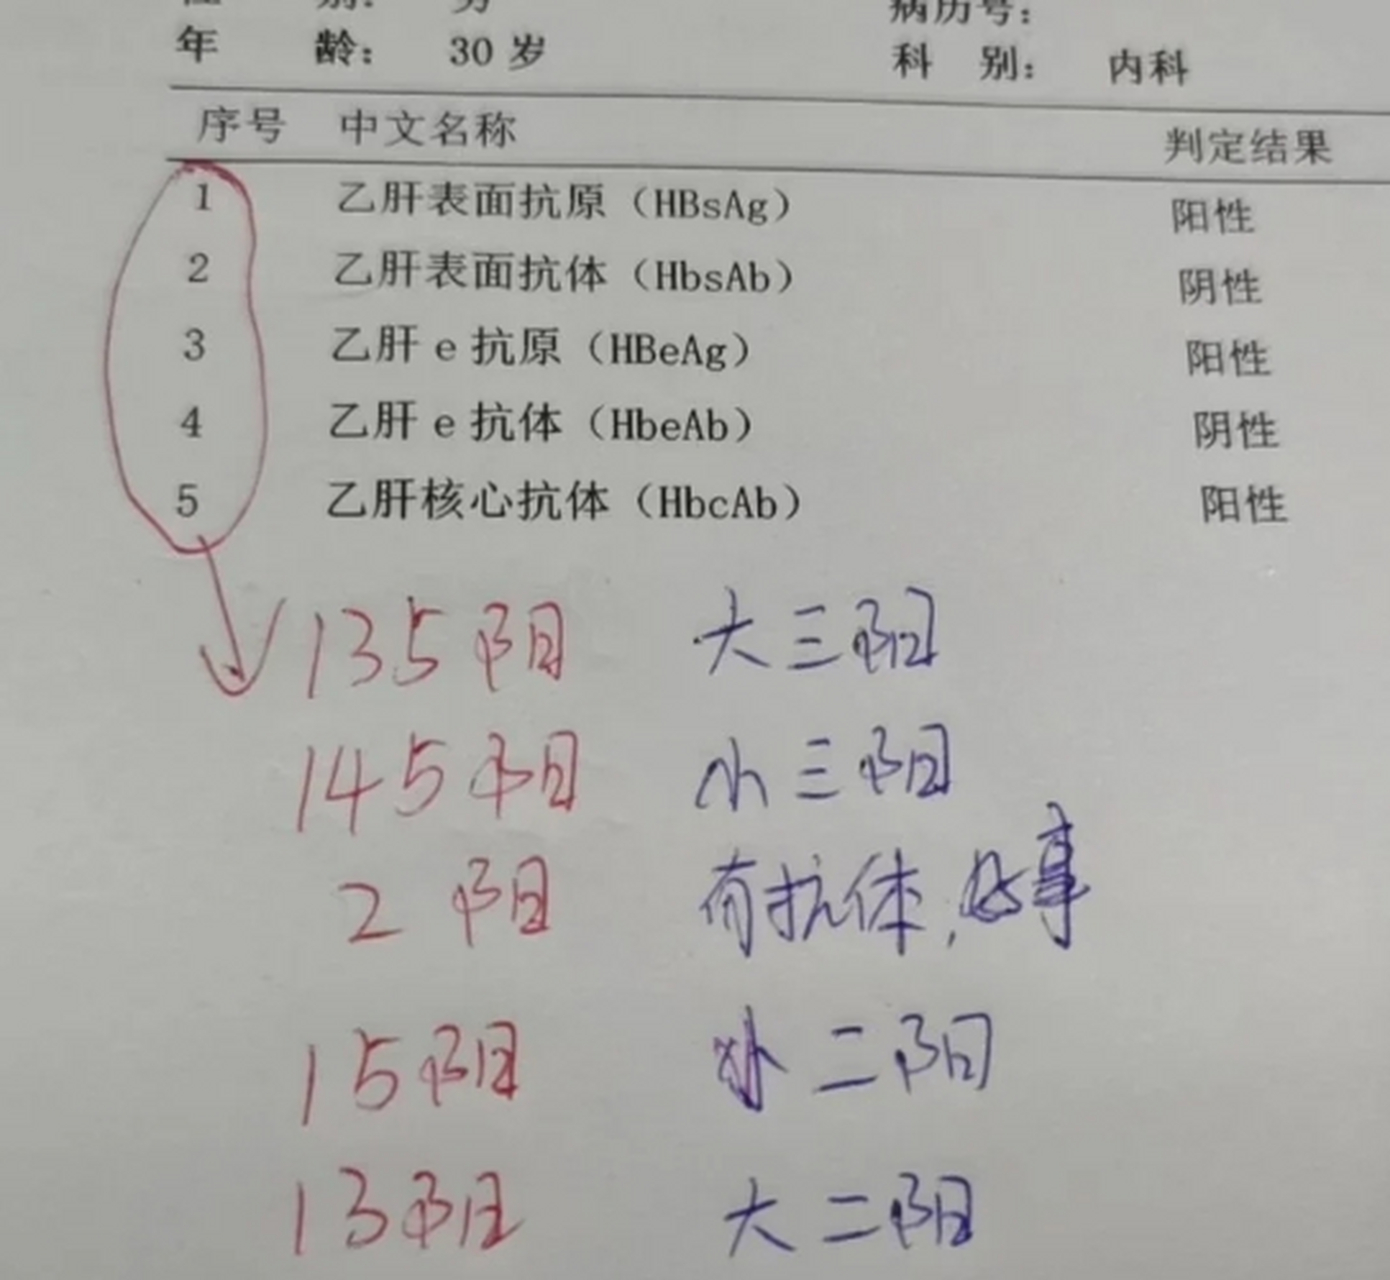 性 别： 男 病历号：
年 龄： 30 岁 科 别： 内科
序号 中文名称 判定结果
1 乙肝表面抗原（HBsAg） 阳性
2 乙肝表面抗体（HbsAb） 阴性
3 乙肝 e 抗原（HBeAg） 阳性
4 乙肝 e 抗体（HbeAb） 阴性
5 乙肝核心抗体（HbcAb） 阳性
135阳 大三阳
145阳 小三阳
2 阳 有抗体,好事
15阳 小二阳
13阳 大二阳